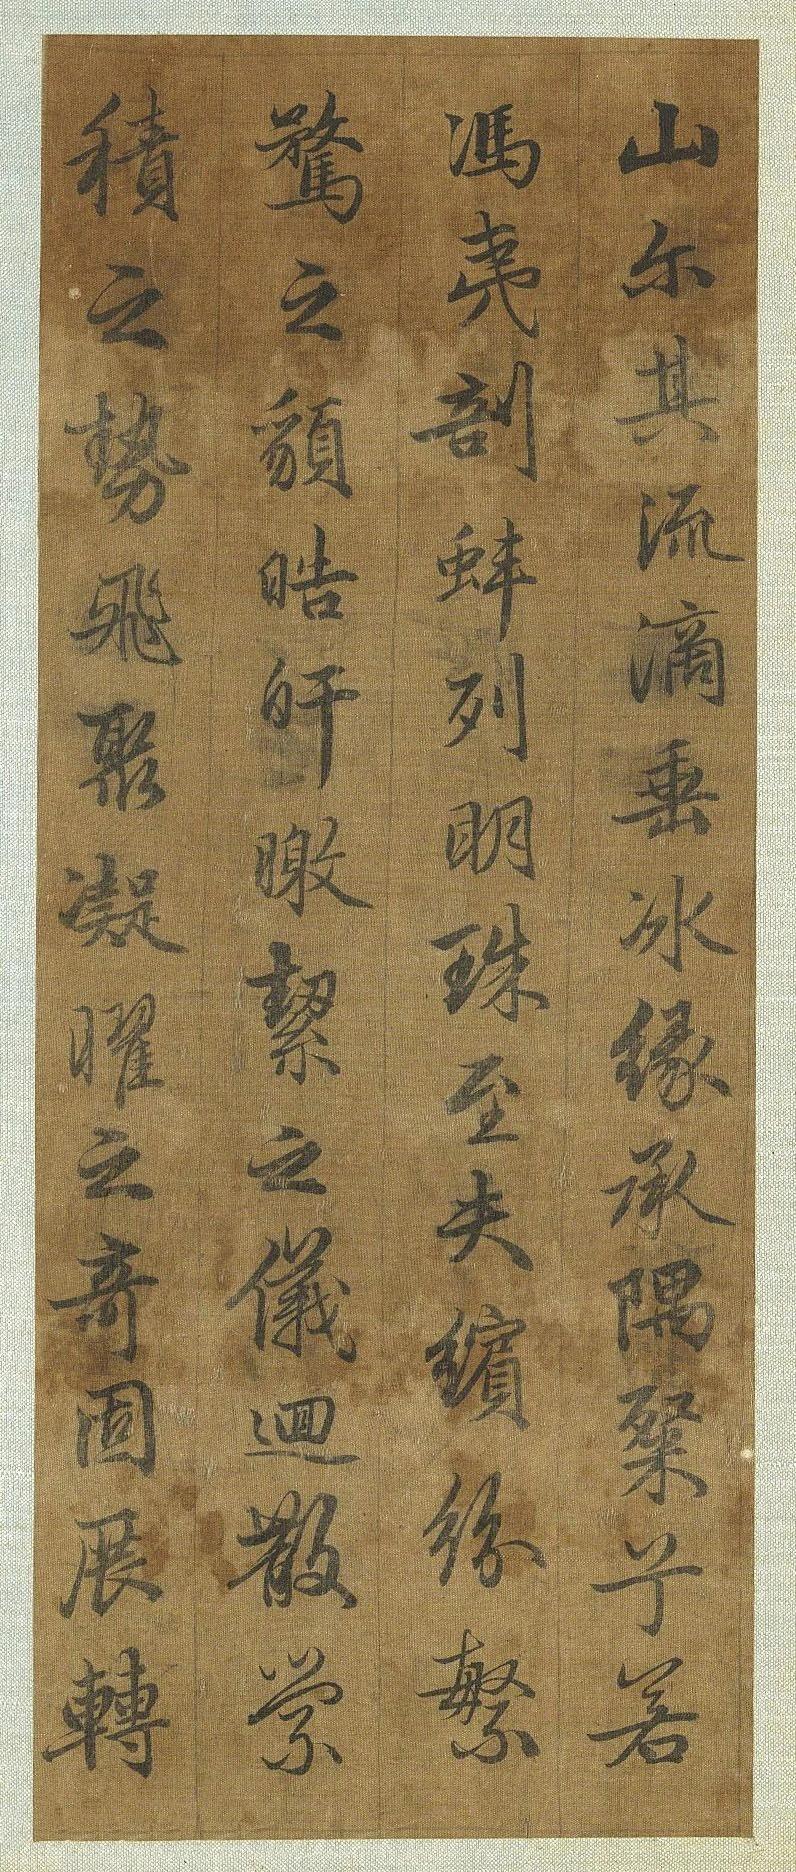 山尓其流滴垂冰緣承隅粲兮若
馮夷剖蚌列明珠至夫繽紛繁
驚之貌皓皔曒絜之儀迴散縈
積之勢飛聚凝曜之奇固展轉